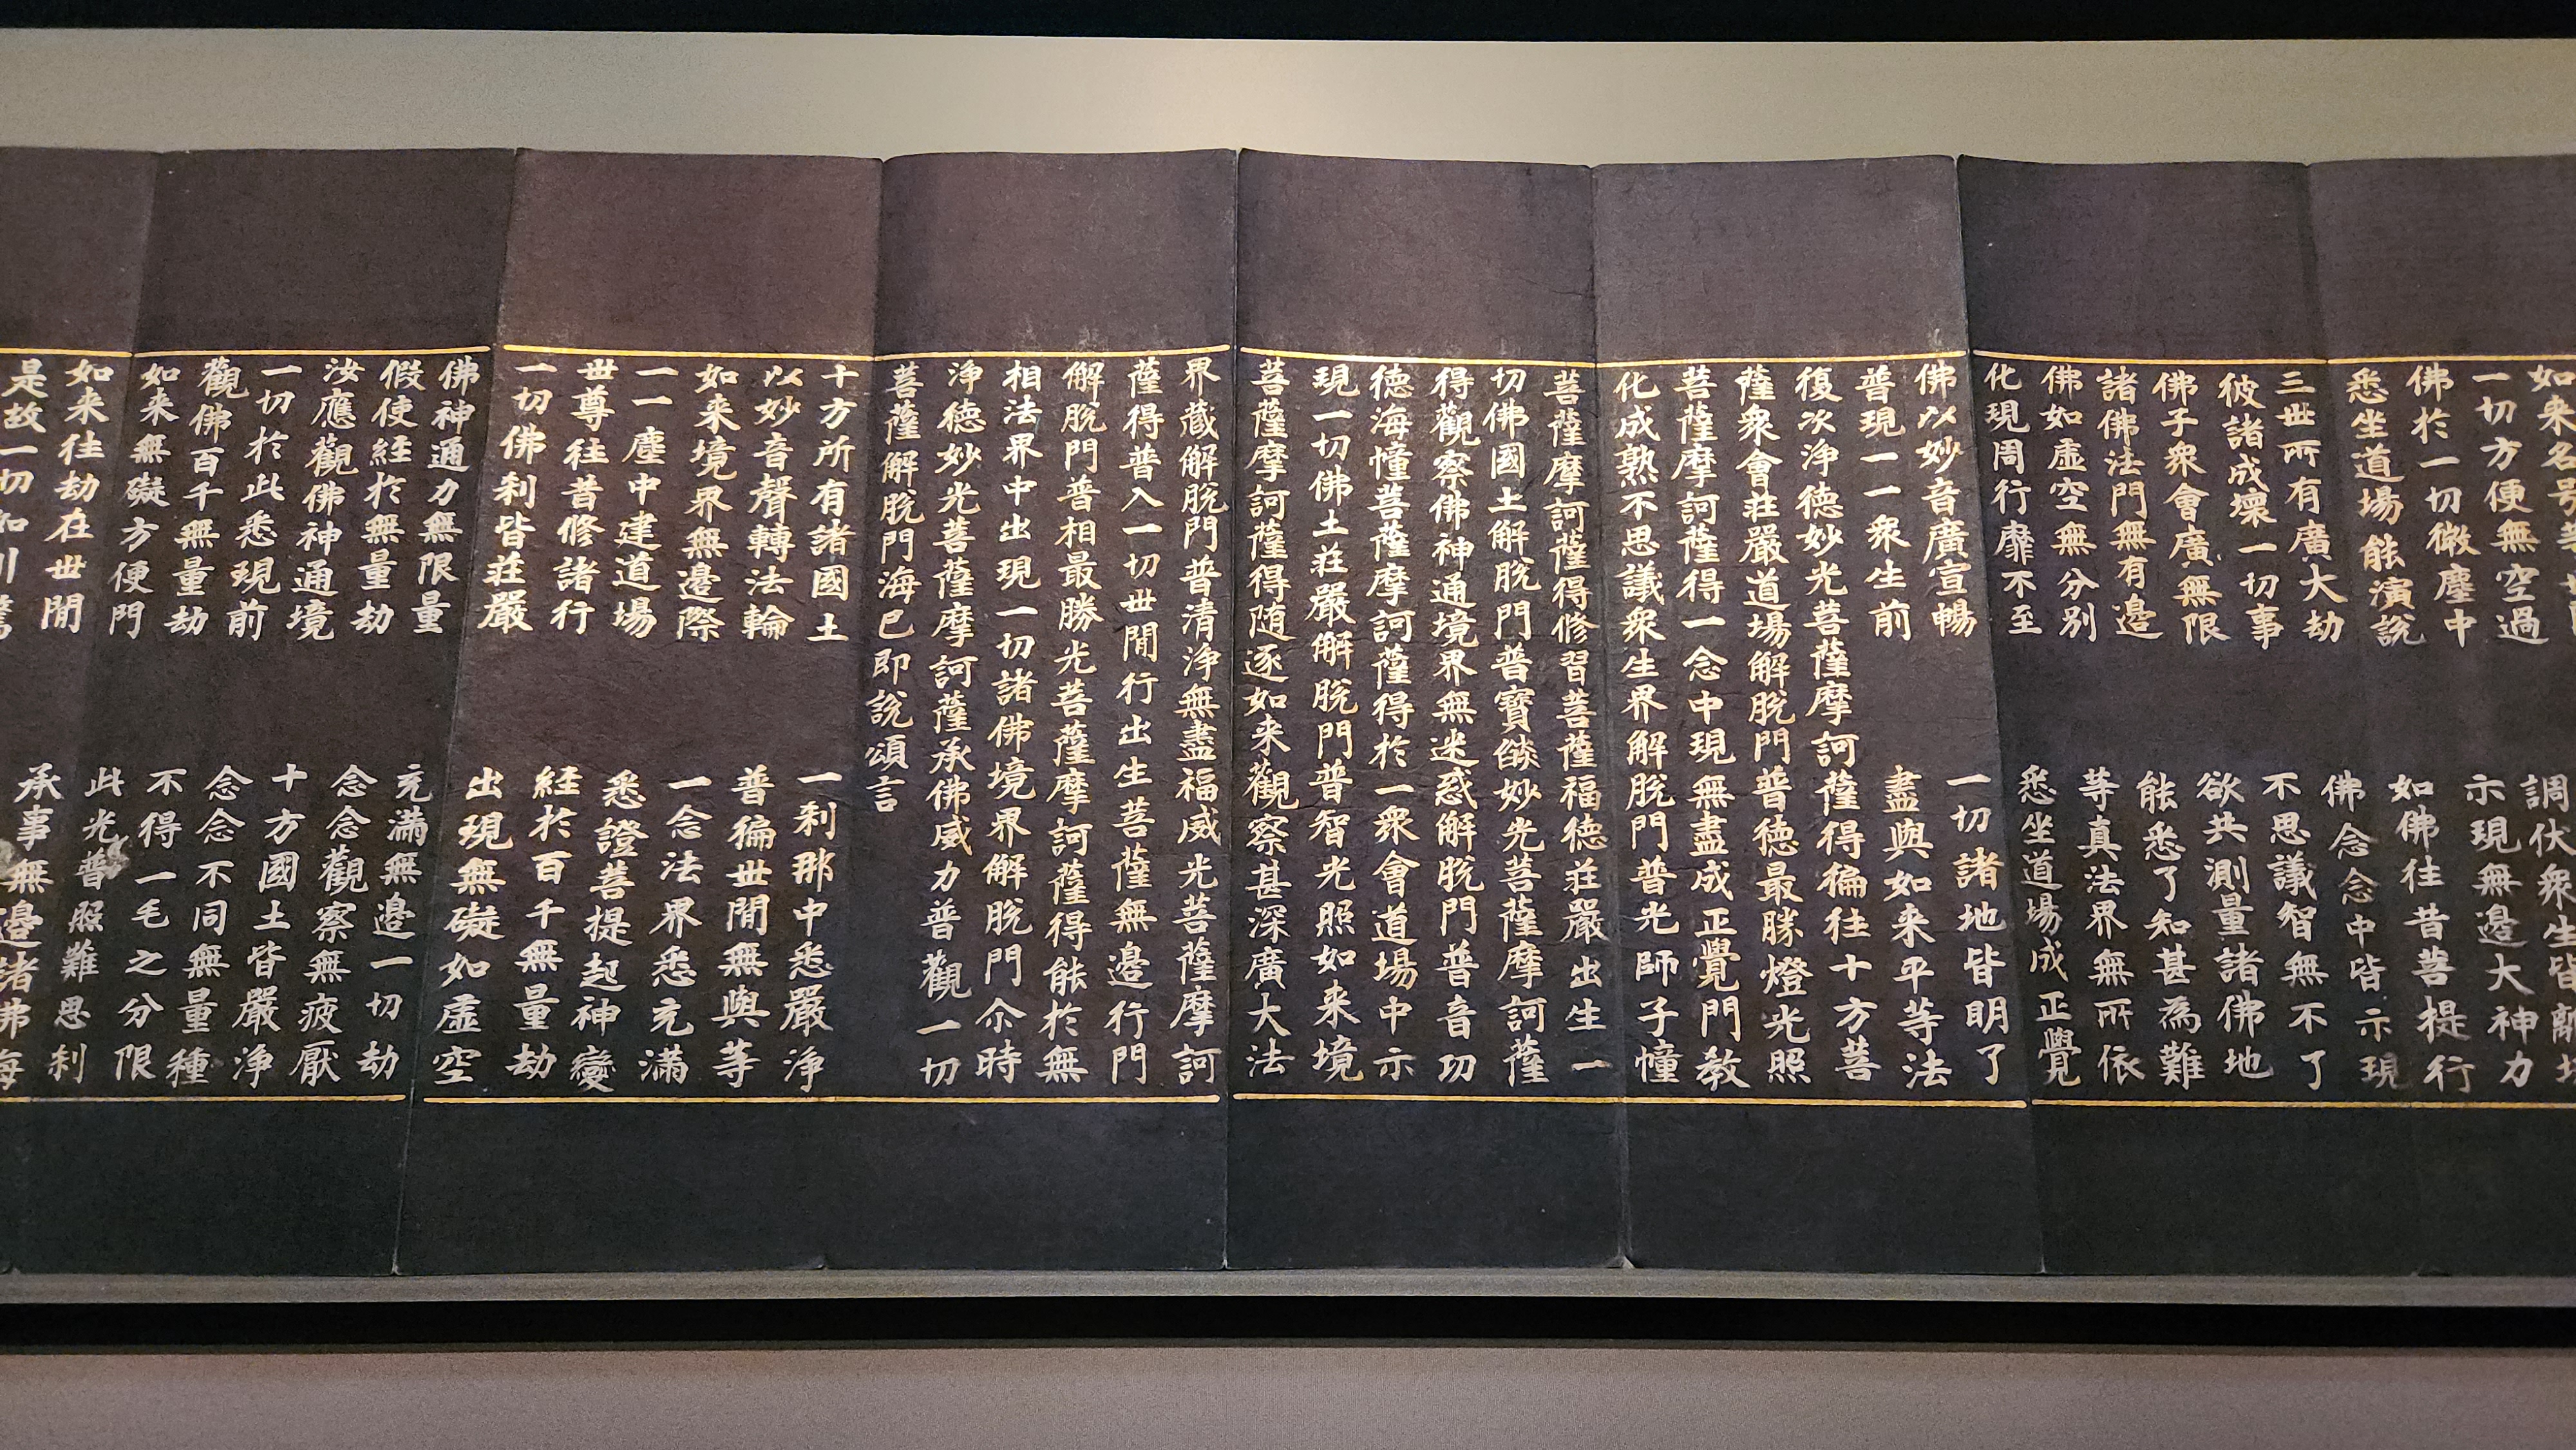 如来名号
一切方便無空過　調伏衆生皆離垢
佛於一切微塵中　示現無邊大神力
悉坐道場能演說　如佛往昔菩提行
三世所有廣大劫　佛念念中皆示現
彼諸成壞一切事　不思議智無不了
佛子衆會廣無限　欲共測量諸佛地
諸佛法門無有邊　能悉了知甚為難
佛如虛空無分別　等真法界無所依
化現周行靡不至　悉坐道場成正覺
佛以妙音廣宣暢　一切諸地皆明了
普現一一衆生前　盡與如来平等法
復次淨德妙光菩薩摩訶薩得徧往十方菩
薩衆會莊嚴道場解脫門普德最勝燈光照
菩薩摩訶薩得一念中現無盡成正覺門教
化成熟不思議衆生界解脫門普光師子幢
菩薩摩訶薩得修習菩薩福德莊嚴出生一
切佛國土解脫門普寶燄妙光菩薩摩訶薩
得觀察佛神通境界無迷惑解脫門普音功
德海幢菩薩摩訶薩得於一衆會道場中示
現一切佛土莊嚴解脫門普智光照如来境
菩薩摩訶薩得随逐如来觀察甚深廣大法
界藏解脫門普清淨無盡福威光菩薩摩訶
薩得普入一切世間行出生菩薩無邊行門
解脫門普相最勝光菩薩摩訶薩得能於無
相法界中出現一切諸佛境界解脫門尒時
淨德妙光菩薩摩訶薩承佛威力普觀一切
菩薩解脫門海已即說頌言
十方所有諸國土　一刹那中悉嚴淨
以妙音聲轉法輪　普徧世間無與等
如来境界無邊際　一念法界悉充滿
一一塵中建道場　悉證菩提起神變
世尊往昔修諸行　経於百千無量劫
一切佛刹皆莊嚴　出現無礙如虛空
佛神通力無限量　充滿無邊一切劫
假使経於無量劫　念念觀察無疲厭
汝應觀佛神通境　十方國土皆嚴淨
一切於此悉現前　念念不同無量種
觀佛百千無量劫　不得一毛之分限
如来無礙方便門　此光普照難思刹
如来往劫在世間　承事無邊諸佛海
是故一切如川